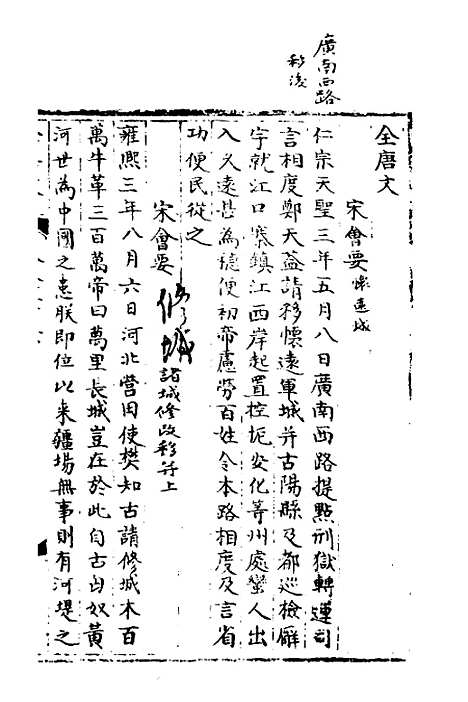 廣南西路
移後
全唐文
宋會要 懷遠城
仁宗天聖三年五月八日廣南西路提點刑獄轉運司
言相度鄭天益請移懷遠軍城并古陽縣及都巡檢廨
宇就江口寨鎮江西岸起置控扼安化等州處蠻人出
入又遠甚為穩便初帝慮勞百姓令本路相度及言省
功便民從之
宋會要 修城 諸城修改移并上
雍熙三年八月六日河北營田使樊知古請修城木百
萬牛革三百萬帝曰萬里長城豈在於此自古匈奴黃
河世為中國之患朕即位以來疆場無事則有河堤之